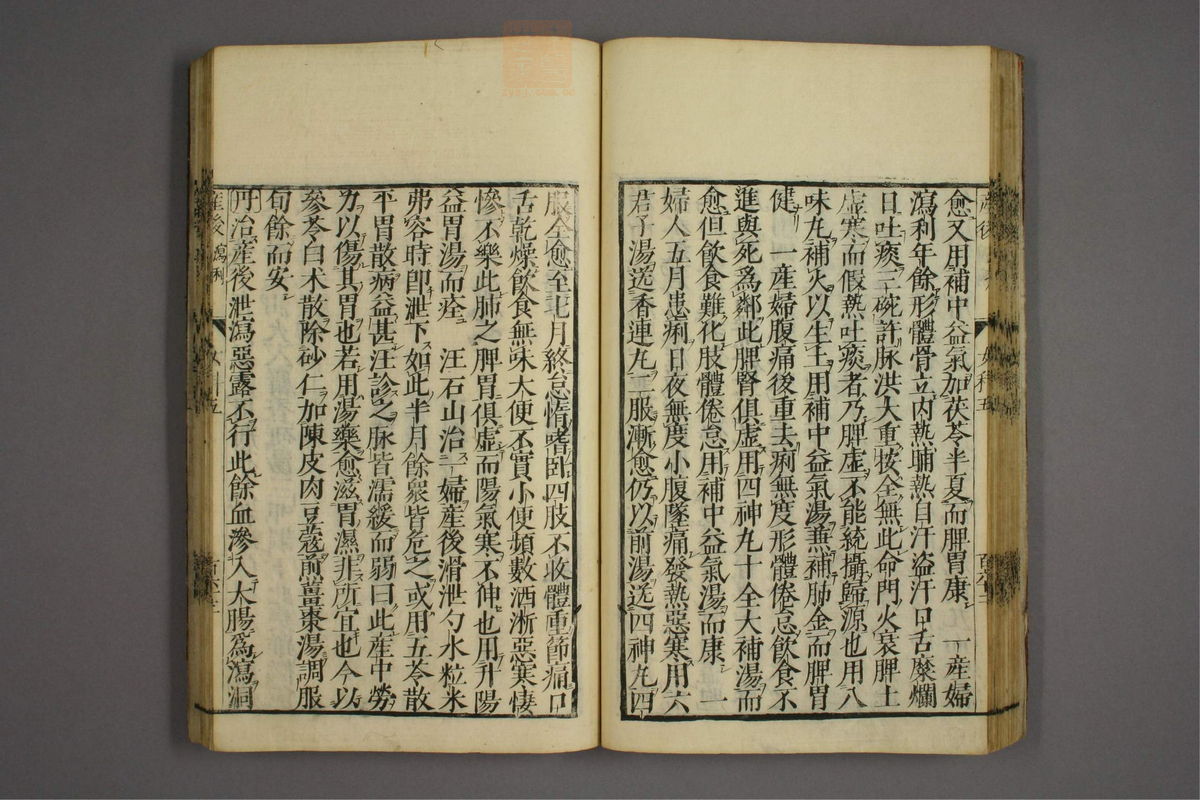 愈又用補中益氣加茯苓半夏而脾胃康 一產婦
瀉利年餘形體骨立內熱晡熱自汗盜汗口舌糜爛
日吐痰三碗許脉洪大重按全無此命門火衰脾土
虛寒而假熱吐痰者乃脾虛不能統攝歸源也用八
味丸補火以生土用補中益氣湯兼補肺金而脾胃
健 一產婦腹痛後重去痢無度形體倦怠飲食不
進與死爲鄰此脾腎俱虛用四神丸十全大補湯而
愈但飲食難化肢體倦怠用補中益氣湯而康 一
婦人五月患痢日夜無度小腹墜痛發熱惡寒用六
君子湯送香連丸二服漸愈仍以前湯送四神丸四
服全愈至七月終怠惰嗜臥四肢不收體重節痛口
舌乾燥飲食無味大便不實小便頻數洒淅惡寒悽
慘不樂此肺之脾胃俱虛而陽氣寒不伸也用升陽
益胃湯而痊 汪石山治一婦產後滑泄勺水粒米
弗容時卽泄下如此半月餘衆皆危之或用五苓散
平胃散病益甚汪診之脉皆濡緩而弱曰此產中勞
力以傷其胃也若用湯藥愈滋胃濕非所宜也今以
參苓白术散除砂仁加陳皮肉豆蔻煎薑棗湯調服
旬餘而安
丹治產後泄瀉惡露不行此餘血滲入大腸爲瀉洞
產後瀉利